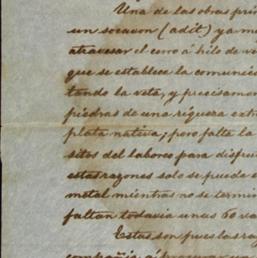 Una de las obras prin
un socavon (adit) ya me
atravesar el cerro á hilo de ve
que se establece la comunica
tando la veta, y precisamen
piedras de una riquera extr
plata nativa; pero falta la
sitos del laboreo para disfru
estas razones solo se puede e
metal mientras no se termin
faltan todavia unas 60 va
Estas son pues las raz
compañia á procurar un